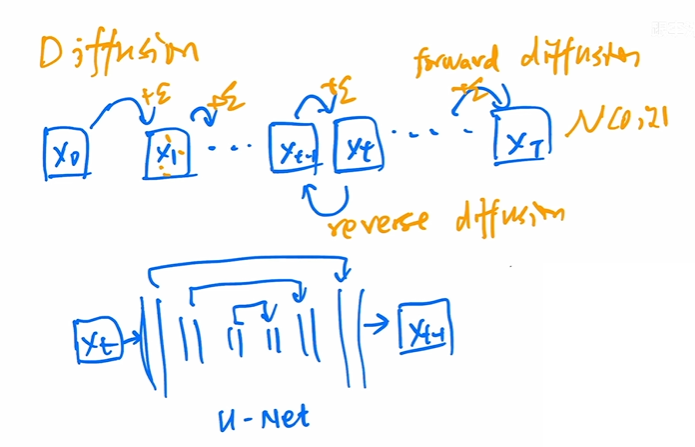 Diffusion
forward diffusion
+ε +ε +ε +ε
x₀ x₁ ... xₜ₋₁ xₜ ... x_T N(0,I)
reverse diffusion
xₜ xₜ₋₁
U-Net